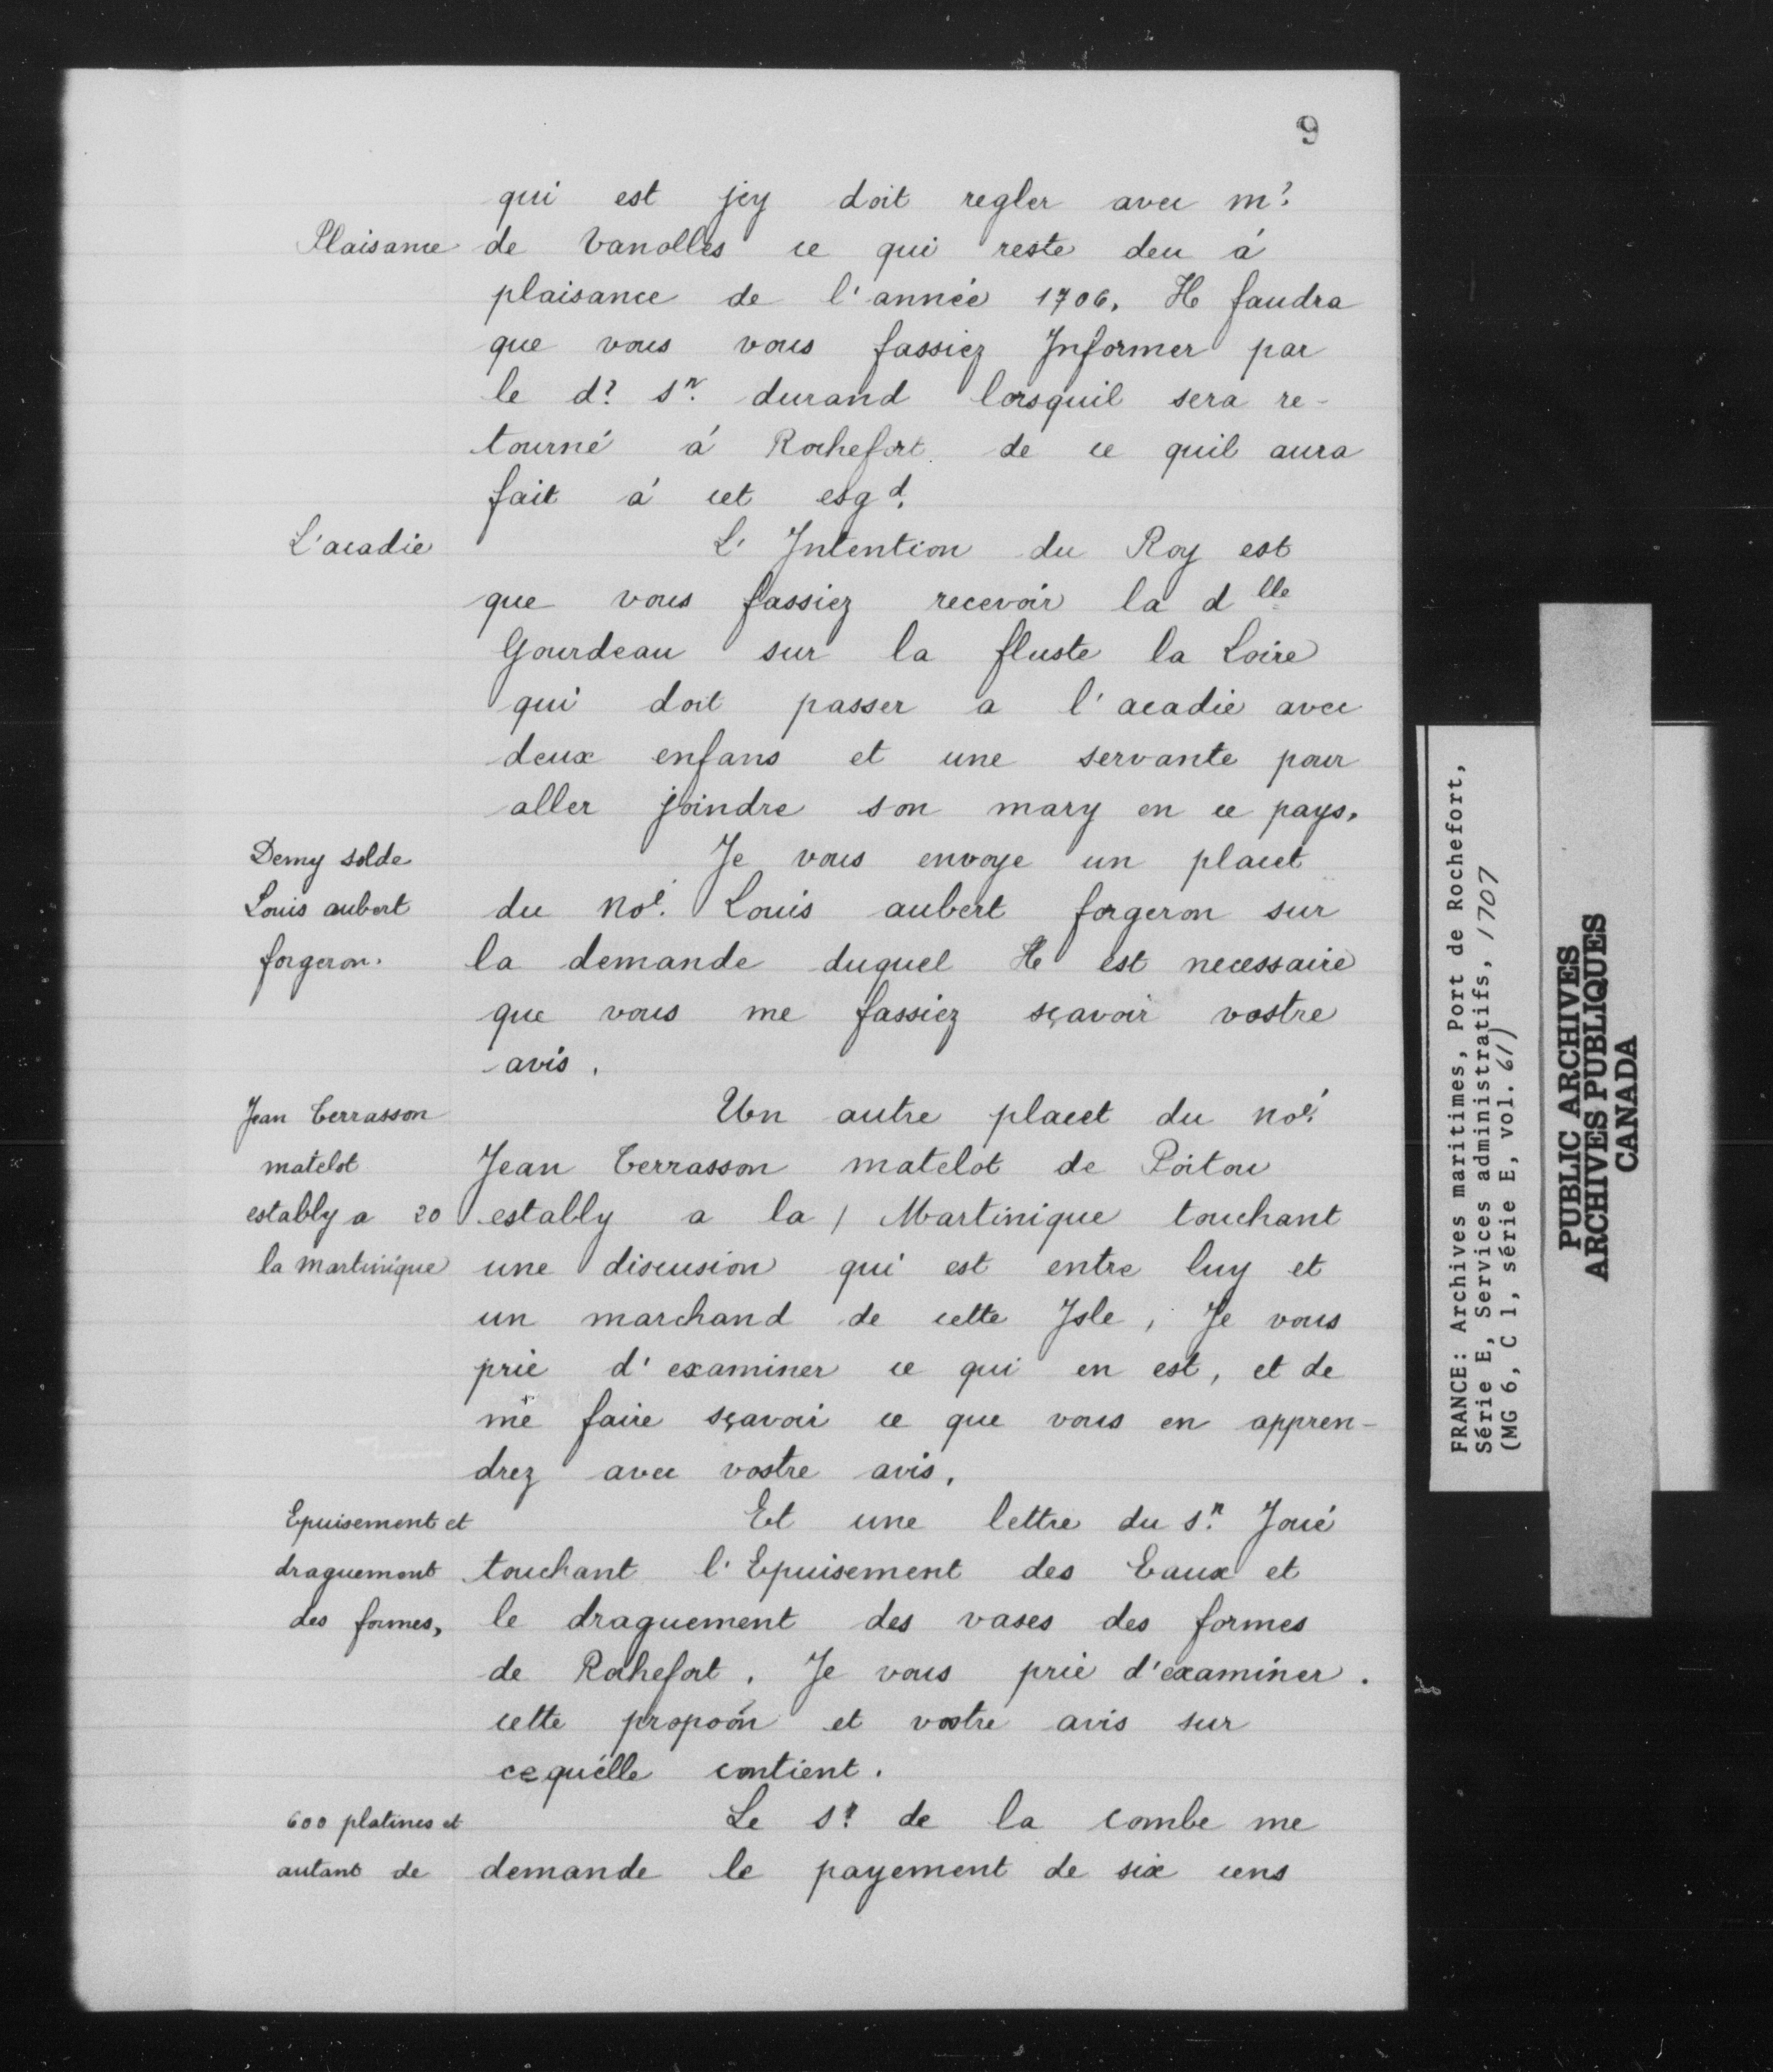 9
qui est jcy doit regler avec mr.
Plaisance de Vanolles ce qui reste deu à
plaisance de l'année 1706. Il faudra
que vous vous fassiez Informer par
le dt. sr. durand lorsquil sera re-
tourné à Rochefort de ce quil aura
fait à cet esgd.
L'acadie L'Intention du Roy est
que vous fassiez recevoir la dlle
Gourdeau sur la fluste la Loire
qui doit passer a l'acadie avec
deux enfans et une servante pour
aller joindre son mary en ce pays.
Demy solde Je vous envoye un placet
Louis aubert du noé. Louis aubert forgeron sur
forgeron. la demande duquel Il est necessaire
que vous me fassiez sçavoir vostre
avis.
Jean Terrasson Un autre placet du noé.
matelot Jean Terrasson matelot de Poitou
estably a 20 estably a la / Martinique touchant
la martinique une discusion qui est entre luy et
un marchand de cette Isle, Je vous
prie d'examiner ce qui en est, et de
me faire sçavoir ce que vous en appren-
drez avec vostre avis.
Epuisement et Et une lettre du sr. Joué
draguement touchant l'Epuisement des Eaux et
des formes, le draguement des vases des formes
de Rochefort. Je vous prie d'examiner.
cette propoón et vostre avis sur
cequ'elle contient.
600 platines et Le sr. de la combe me
autant de demande le payement de six cens
FRANCE: Archives maritimes, Port de Rochefort,
Série E, Services administratifs, 1707
(MG 6, C 1, série E, vol. 61)
PUBLIC ARCHIVES
ARCHIVES PUBLIQUES
CANADA